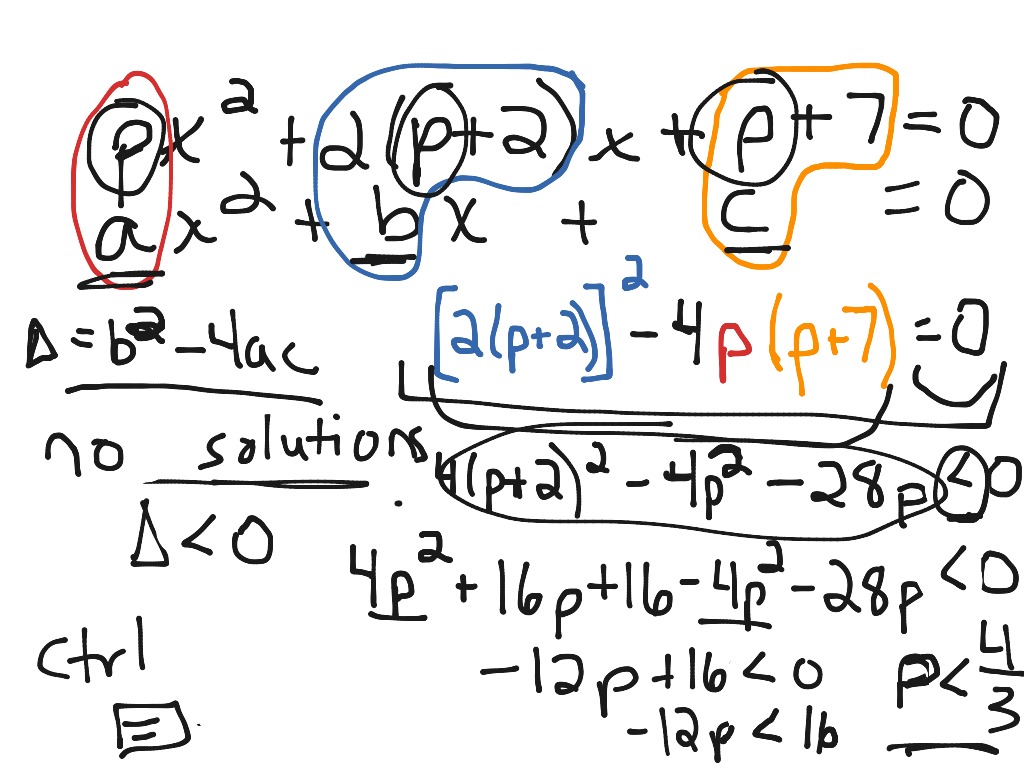 px² + 2(p+2)x + p + 7 = 0
ax² + bx + c = 0
Δ = b² - 4ac
[2(p+2)]² - 4p(p+7) = 0
no solutions.
4(p+2)² - 4p² - 28p < 0
Δ < 0
4p² + 16p + 16 - 4p² - 28p < 0
ctrl
-12p + 16 < 0
p < 4/3
-12p < 16
=